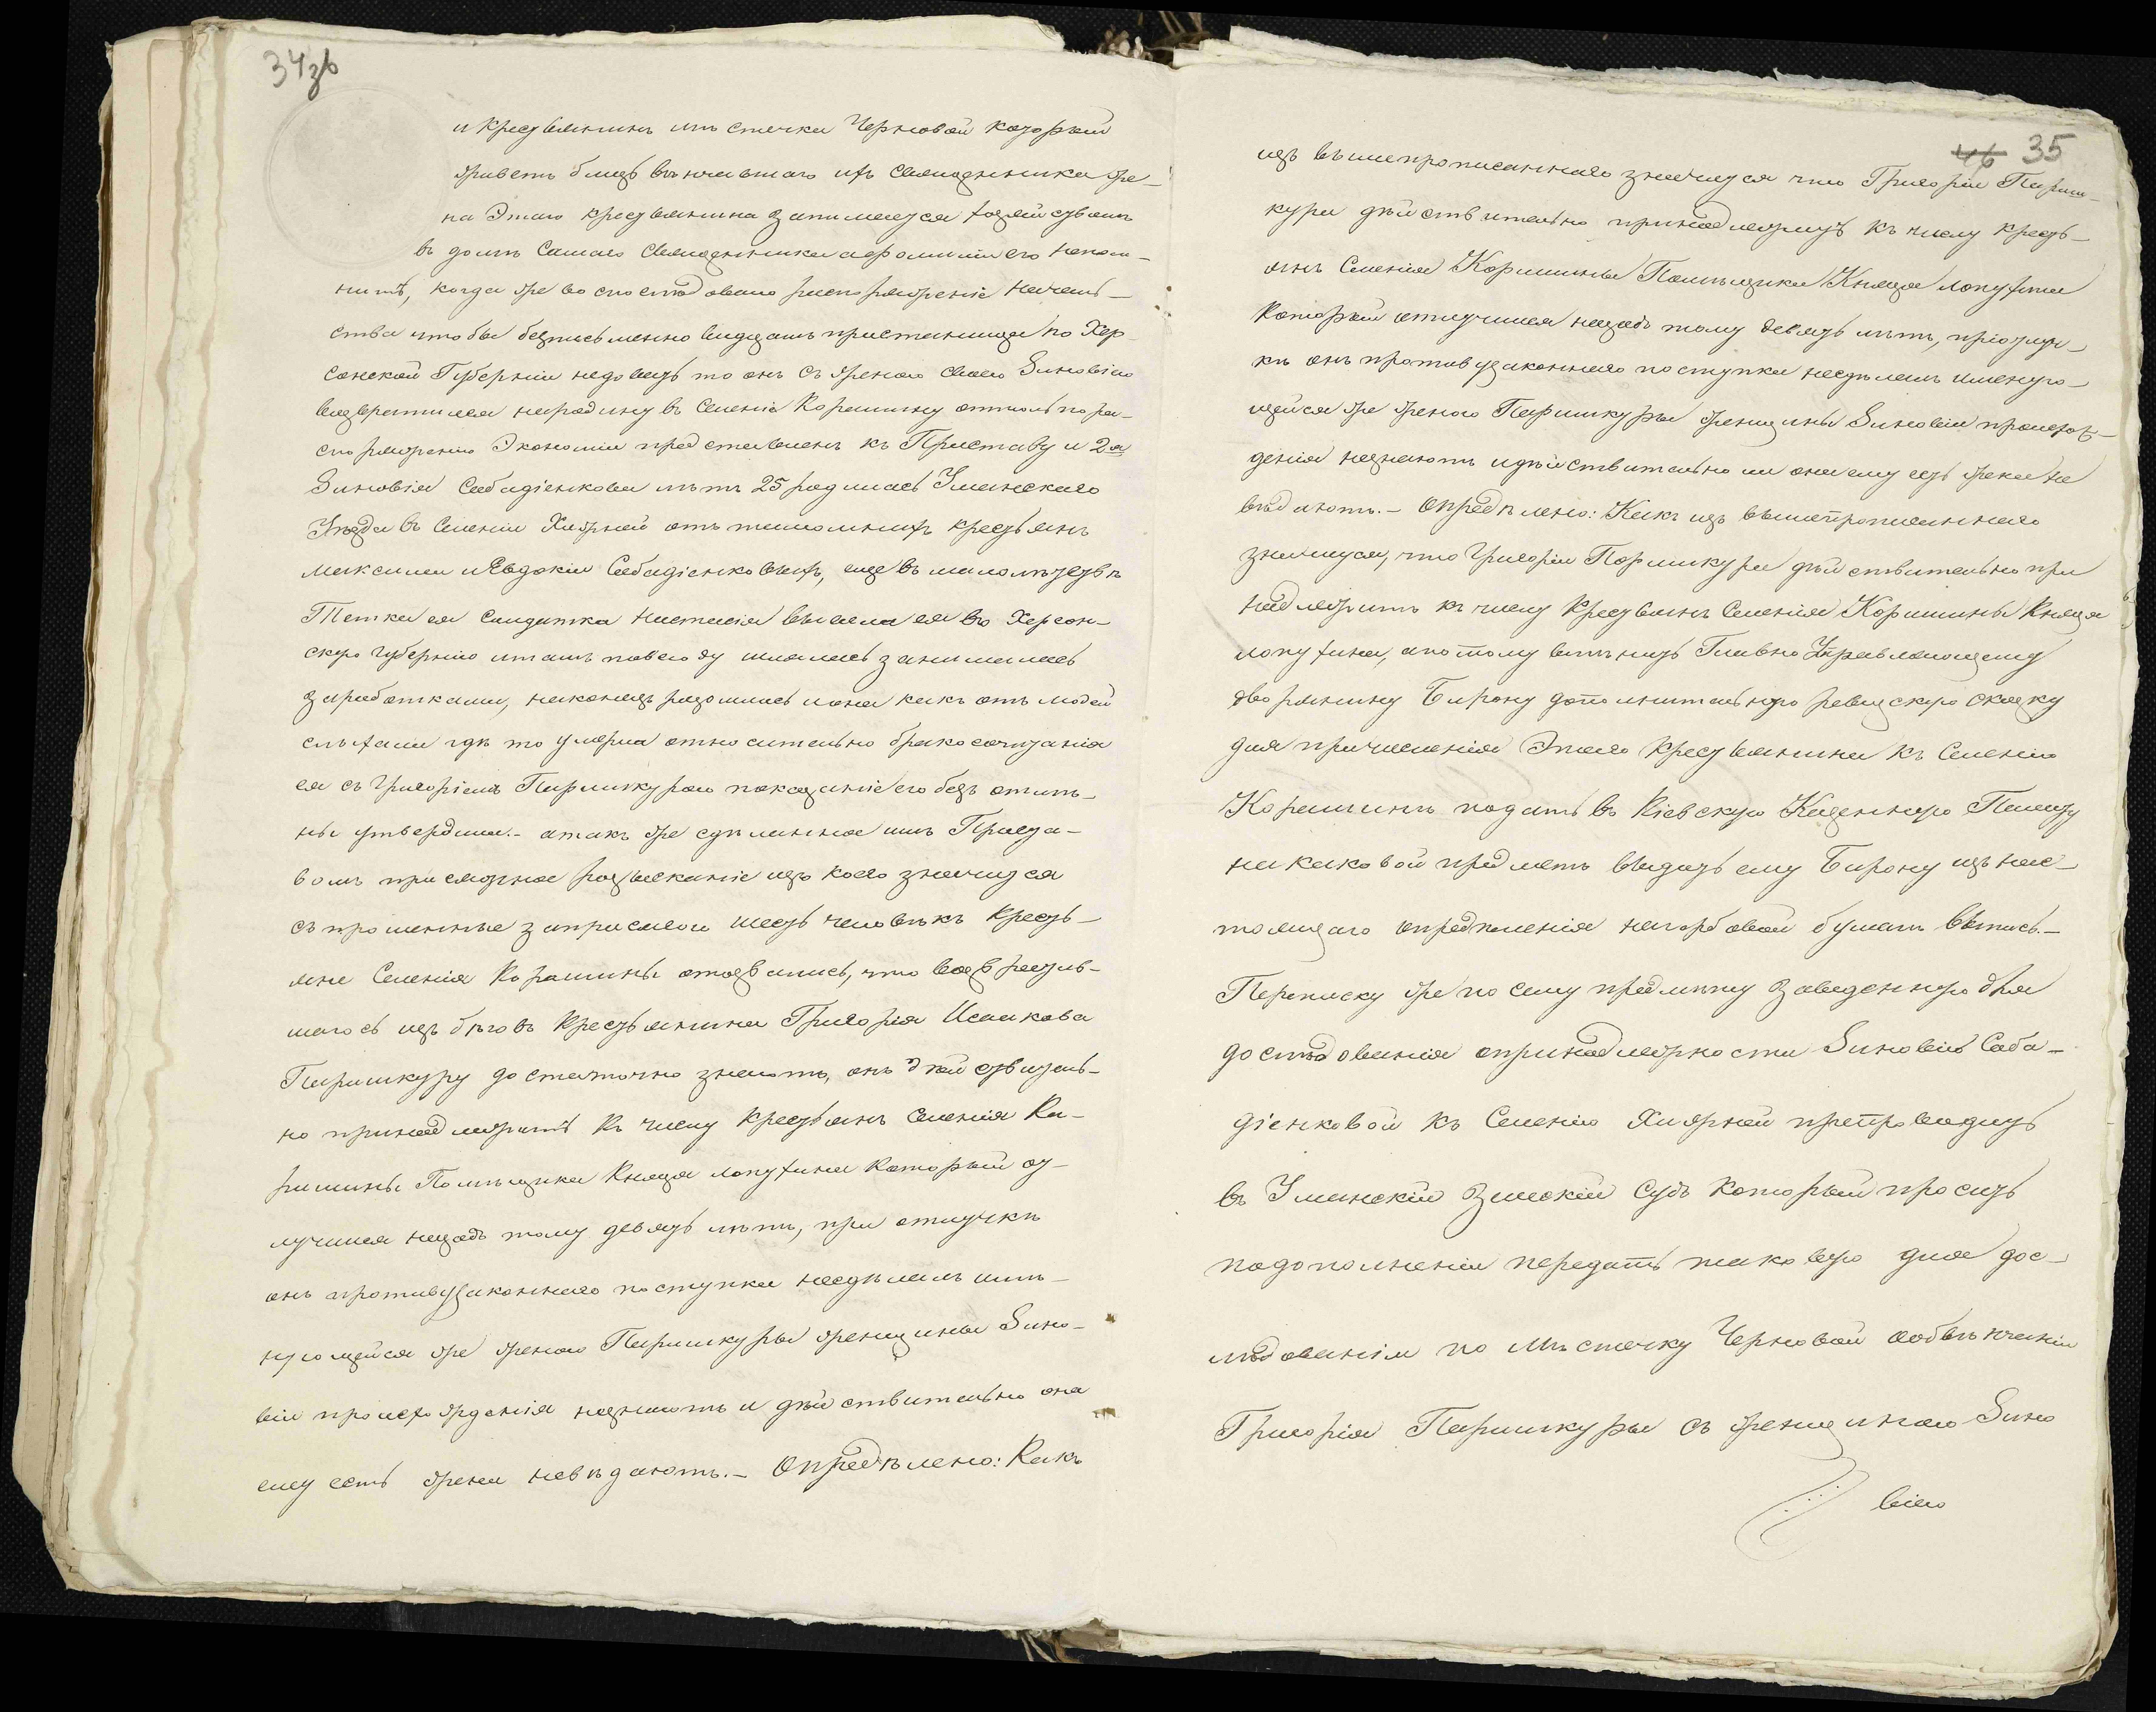 34зв
и крестьянинъ мѣстечка Черновой который
живетъ близъ вѣнчавшаго ихъ Священника же-
на Этаго крестьянина занимается хозяйствомъ
въ домѣ Самаго Священника а фамиліи его непом-
нитъ, когда же воспослѣдовало распоряженіе Началь-
ства чтобы безписьменно видущимъ пристанища по Хер-
сонской Губерніи недавать то онъ съ женою своею Зиновіею
возвратился народину въ Селеніе Корашину оттоль по ра-
споряженію Экономіи представленъ къ Приставу и 2я
Зиновія Сабадієнкова лѣтъ 25 родилась Уманскаго
Уѣзда въ Селеніи Хижней отъ тамошнихъ крестьянъ
Максима и Евдокіи Сабадієнковыхъ, еще въ малолѣтствѣ
Тетка ея Солдатка Настасія вывела ея въ Херсон-
скую губернію и тамъ повсюду шлялись занимались
заработками, наконецъ разошлись и она какъ отъ людей
слыхали гдѣ то умерла относительно бракосочитанія
ея съ Григоріемъ Паришкурою показаніе его безъ отмѣ-
ны утвердила. - а такъ же сдѣланное имъ Приста-
вомъ присяжное розысканіе изъ коего значится
спрошенные заприсягою шесть человѣкъ крестъ-
яне Селенія Корашины отозвались, что возвратив-
шагось изъ бѣговъ крестьянина Григорія Исаакова
Паришкуру достаточно знаютъ, онъ дѣйствитель-
но принадлежитъ къ числу крестьянъ Селенія Ка-
рашины Помѣщика Князя Лопухина который от-
лучился назадъ тому девять лѣтъ, при отлучкѣ
онъ противузаконнаго поступка несдѣлалъ имѣ-
нующейся же женою Паришкуры женщины Зино-
віи происхожденія незнаютъ и дѣйствительно она
ему есть жена невѣдаютъ. - Опредѣлено: Какъ
46 35
изъ вышепрописаннаго значится что Григорій Париш-
кура дѣйствительно принадлежитъ къ числу кресть-
янъ Селенія Коришины Помѣщика Князя Лопухина
Который отлучился назадъ тому девять лѣтъ, при отлуч-
кѣ онъ противузаконнаго поступка несдѣлалъ именую-
щейся же женою Паришкуры женщины Зиновіи происхож-
денія незнаютъ и дѣйствительно ли она ему есть жена не
вѣдаютъ. - Опредѣлено: Какъ изъ вышепрописаннаго
значится, что Григорій Паришкура дѣйствительно при
надлежитъ къ числу крестьянъ Селенія Коришины Князя
Лопухина, а потому вмѣнить Главно Управляющему
дворянину Бирону дополнительную ревизскую сказку
для причисленія Этаго крестьянина къ Селенію
Корашинѣ подать въ Кіевскую Казенную Палату
на каковой предметъ выдать ему Бирону изъ нас-
тоящаго опредѣленія нагербовой бумагѣ выпись. -
Переписку же по сему предмету заведенную для
дослѣдованія опринадлежности Зиновіи Саба-
дієнковой къ Селенію Хижней препроводить
въ Уманскій Земскій Судъ который просить
подополненіи передать таковую для дос-
лѣдованія по Мѣстечку Черновой о обвѣнчаніи
Григорія Паришкуры съ женщиною Зино
віею